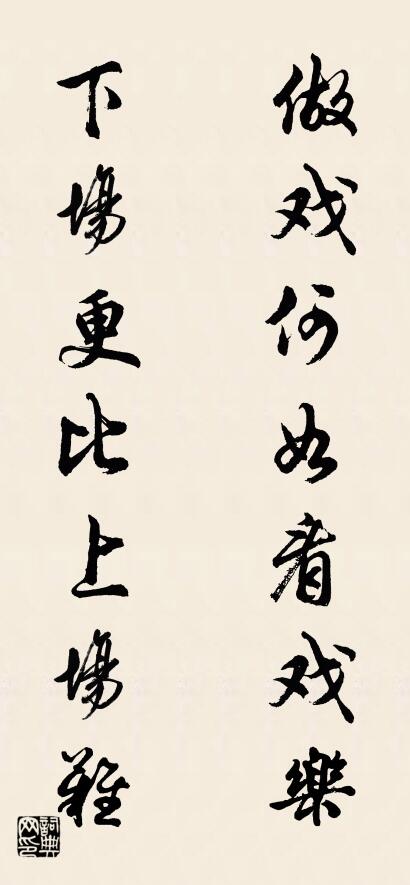 做戏何如看戏樂
下場更比上場難
詞典网印